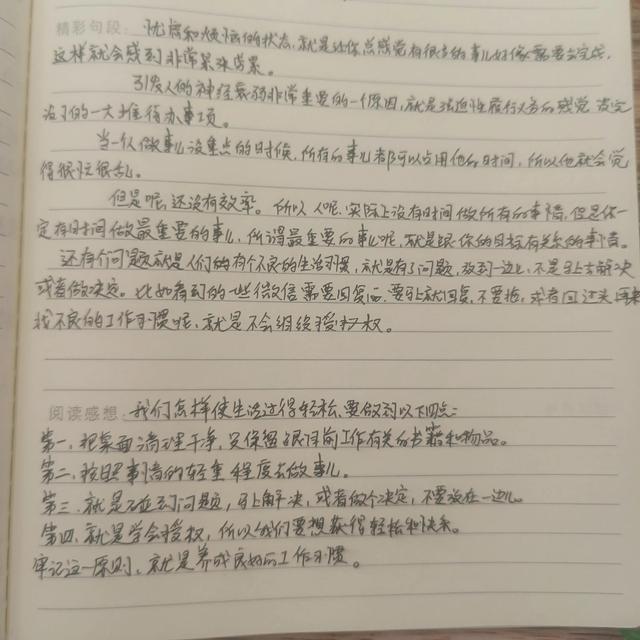 精彩句段: 忧虑和烦恼的状态, 就是让你总感觉有很多的事儿好像需要去完成,
这样就会感到非常紧张劳累。
引发人的神经衰弱非常重要的一个原因, 就是强迫性履行义务的感觉 没完
没了的一大堆待办事项。
当一个人做事儿没重点的时候, 所有的事儿都可以占用他的时间, 所以他就会觉
得很忙很乱。
但是呢, 还没有效率。所以人呢, 实际上没有时间做所有的事情, 但是你一
定有时间做最重要的事儿, 所谓最重要的事儿呢, 就是跟你的目标有关系的事情。
还有个问题就是人们的有个不良的生活习惯, 就是有了问题, 放到一边儿, 不是马上去解决
或者做决定。比如看到的一些微信需要回复的, 要马上就回复, 不要拖, 或者回过头再来
找不良的工作习惯呢, 就是不会组织授权。
阅读感想: 我们怎样使生活过得轻松, 要做到以下四点:
第一, 把桌面清理干净, 只保留跟目前工作有关的书籍和物品。
第二, 按照事情的轻重程度去做事儿。
第三, 就是碰到问题, 马上解决, 或者做个决定, 不要放在一边儿。
第四, 就是学会授权, 所以我们要想获得轻松和快乐。
牢记这一原则, 就是养成良好的工作习惯。